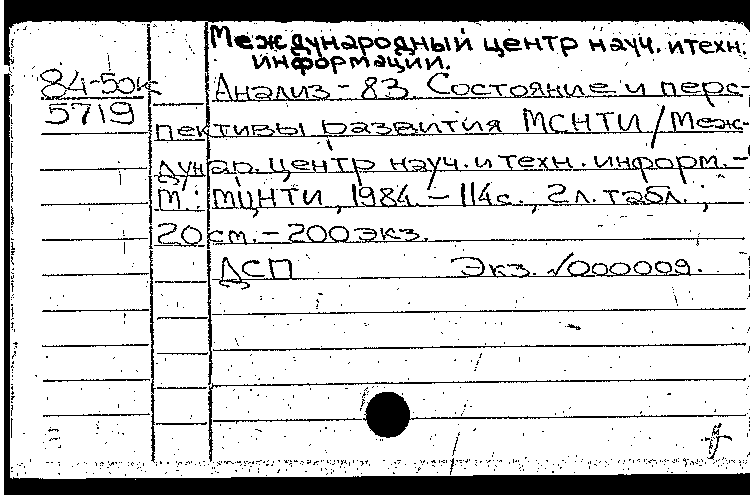 Международный центр науч. и техн.
информации.
84-50к Анализ-83. Состояние и перс-
5719 пективы развития МСНТИ / Меж-
дунар. центр науч. и техн. информ. -
М.: МЦНТИ, 1984. - 114 с., 2 л. табл. ;
20 см. - 200 экз.
ДСП Экз. √000009.